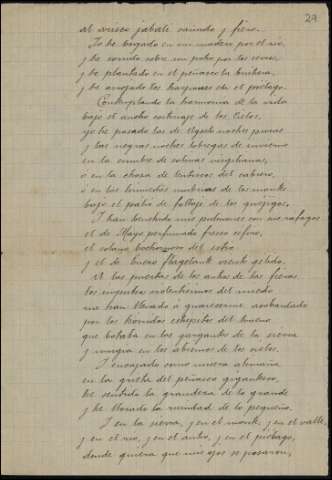 29
al arisco jabalí sañudo y fiero.
Yo he bogado en un madero por el río,
y he corrido sobre un potro por los cerros,
y he plantado en el peñasco la
y he arrojado los harpones en el piélago.
Contemplando la harmonía de la vida
bajo el ancho cortinaje de los cielos,
yo he pasado las de Agosto noches puras
y las negras noches lóbregas de invierno
en la cumbre de colinas virgilianas,
ó en la choza de lentiscos del cabrero,
ó en las húmedas umbrías de los montes
bajo el palio de follaje de los quejigos,
Y han henchido mis pulmones con sus ráfagas
el de Mayo perfumado fresco céfiro,
el solano bochornoso del estío
y el de Enero flagelante viento gélido.
A las puertas de los antros de las fieras
los impulsos del miedo
me han llevado á guarecerme acobardado
por los hórridos del trueno
que botaba en las gargantas de la sierra
y mugía en los abismos de los cielos.
Y encajado como mísera alimaña
en la grieta del peñasco gigantesco,
he sentido la grandeza de lo grande
y he llorado la ruindad de lo pequeño.
Y en la sierra, y en el monte, y en el valle,
y en el río, y en el antro, y en el piélago,
donde quiera que mis ojos se posaron,